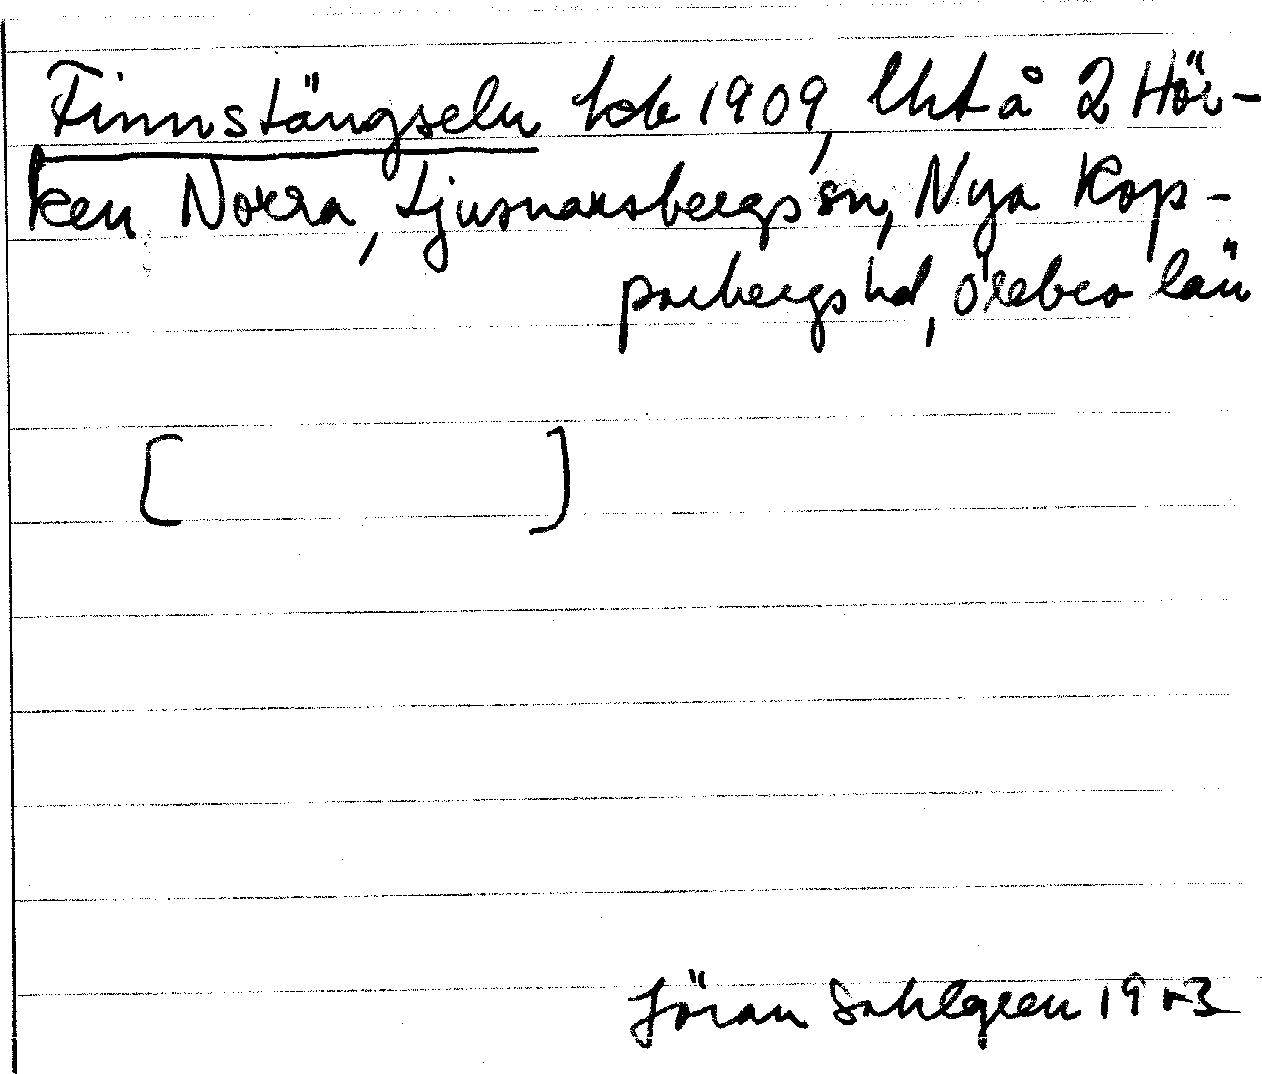 Finnstängseln krb 1909, lht å 2 Hör-
ken Norra, Ljusnarsbergs sn, Nya Kop-
parbergs hd, Örebro län
[ ]
Jöran Sahlgren